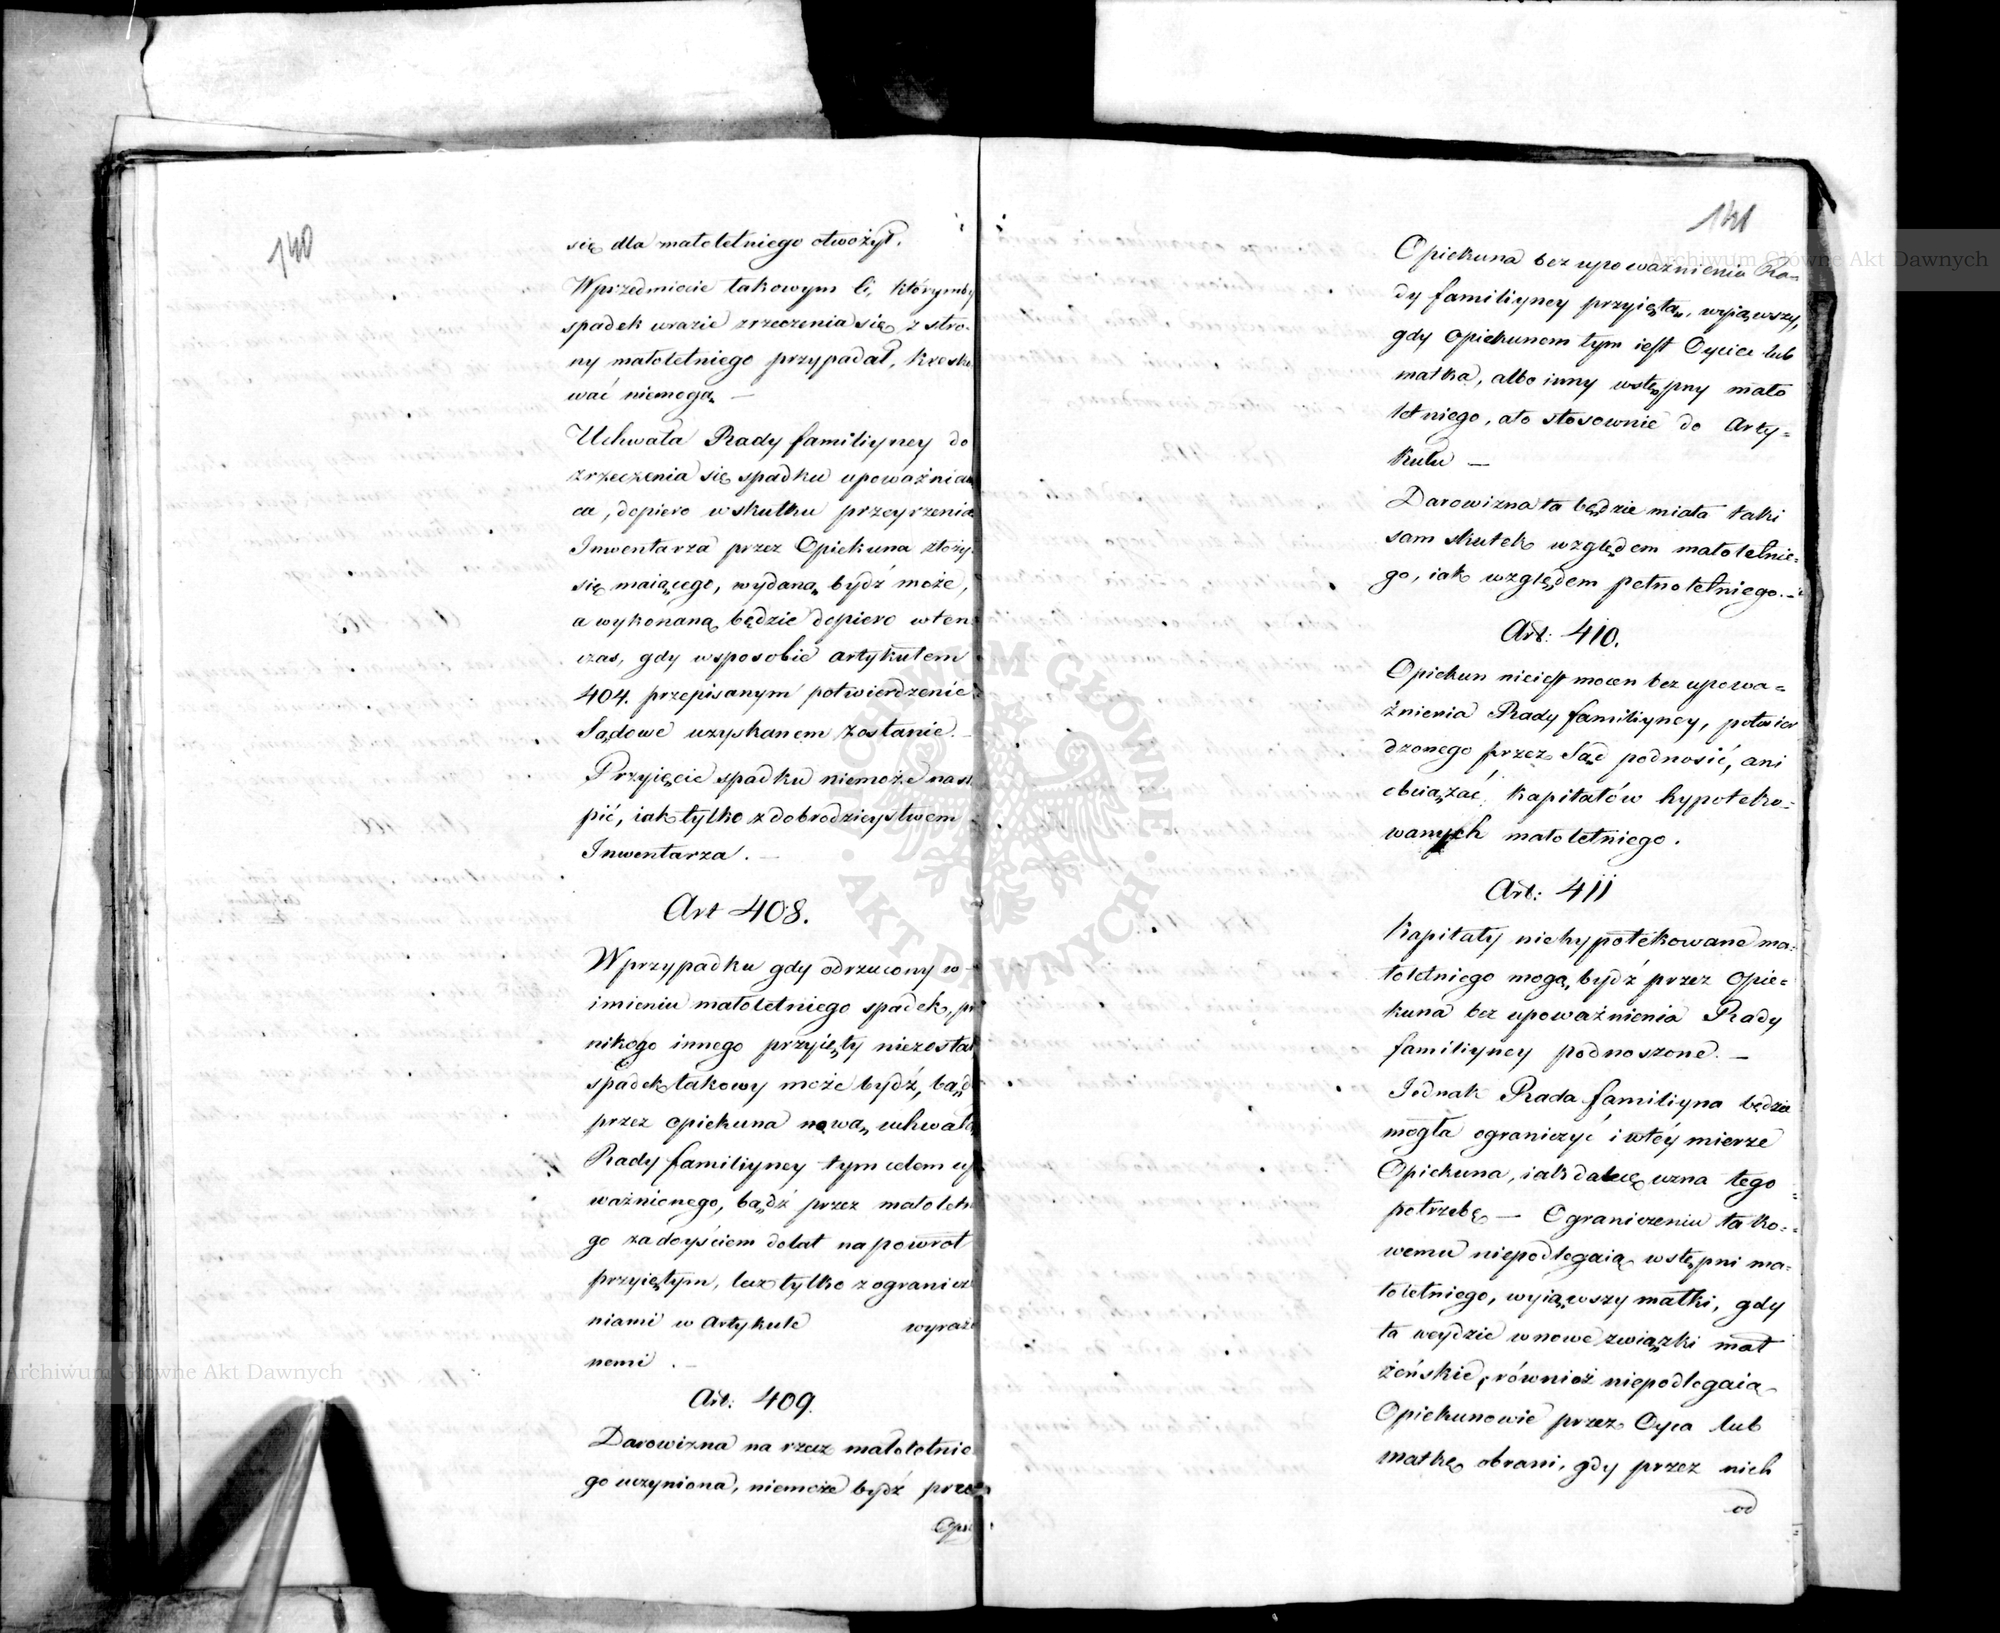 140
się dla małoletniego otwożył.
W przedmiocie takowym ci, którymby
spadek wrazie zrzeczenia się z stro-
ny małoletniego przypadał, kresko
wać niemogą —
Uchwała Rady familiyney do
zrzeczenia się spadku upoważniaią
ca, dopiero w skutku przeyrzenia
Inwentarza przez Opiekuna złożyć
się maiącego, wydaną bydź może,
a wykonaną będzie dopiero wten
czas, gdy wsposobie artykułem
404. przepisanym potwierdzenie
Sądowe uzyskanem zostanie. —
Przyięcie spadku niemoże nastą
pić, iak tylko z dobrodzieystwem
Inwentarza. —
Art 408.
W przypadku gdy odrzucony w
imieniu małoletniego spadek, pr
nikogo innego przyięty niezostał
spadek takowy może bydź, bądź
przez opiekuna nową uchwałą
Rady familiyney tym celem up
ważnionego, bądź przez małoletn
go zadoyściem dolat napowrót
przyiętym, lecz tylko z ogranicze
niami w Artykule wyrażo
nemi. —
Art: 409.
Darowizna na rzecz małoletnie
go uczyniona, niemoże bydź przez
Opie
141
Opiekuna bez upoważnienia Ra-
dy familiyney przyięta, wyiąwszy,
gdy Opiekunem tym iest Oyciec lub
matka, albo inny wstępny mało
letniego, ato stosownie do Arty-
kułu —
Darowizna ta będzie miała taki
sam skutek względem małoletnie-
go, iak względem pełnoletniego. —
Art: 410.
Opiekun nieiest mocen bez upowa-
żnienia Rady familiyney, potwier
dzonego przez Sąd podnosić, ani
obciążać kapitałów hypoteko-
wanych małoletniego.
Art: 411
Kapitały niehypotekowane ma-
łoletniego mogą bydź przez Opie-
kuna bez upoważnienia Rady
familiyney podnoszone. —
Jednak Rada familiyna będzie
mogła ograniczyć i wtéy mierze
Opiekuna, iak dalece uzna tego
potrzebę — Ograniczeniu tako-
wemu niepodlegaią wstępni ma-
łoletniego, wyiąwszy matki, gdy
ta weydzie w nowe związki mał
żeńskie, również niepodlegaią
Opiekunowie przez Oyca lub
matkę obrani, gdy przez nich
od
Archiwum Główne Akt Dawnych
Archiwum Główne Akt Dawnych
ARCHIWUM GŁÓWNE
AKT DAWNYCH